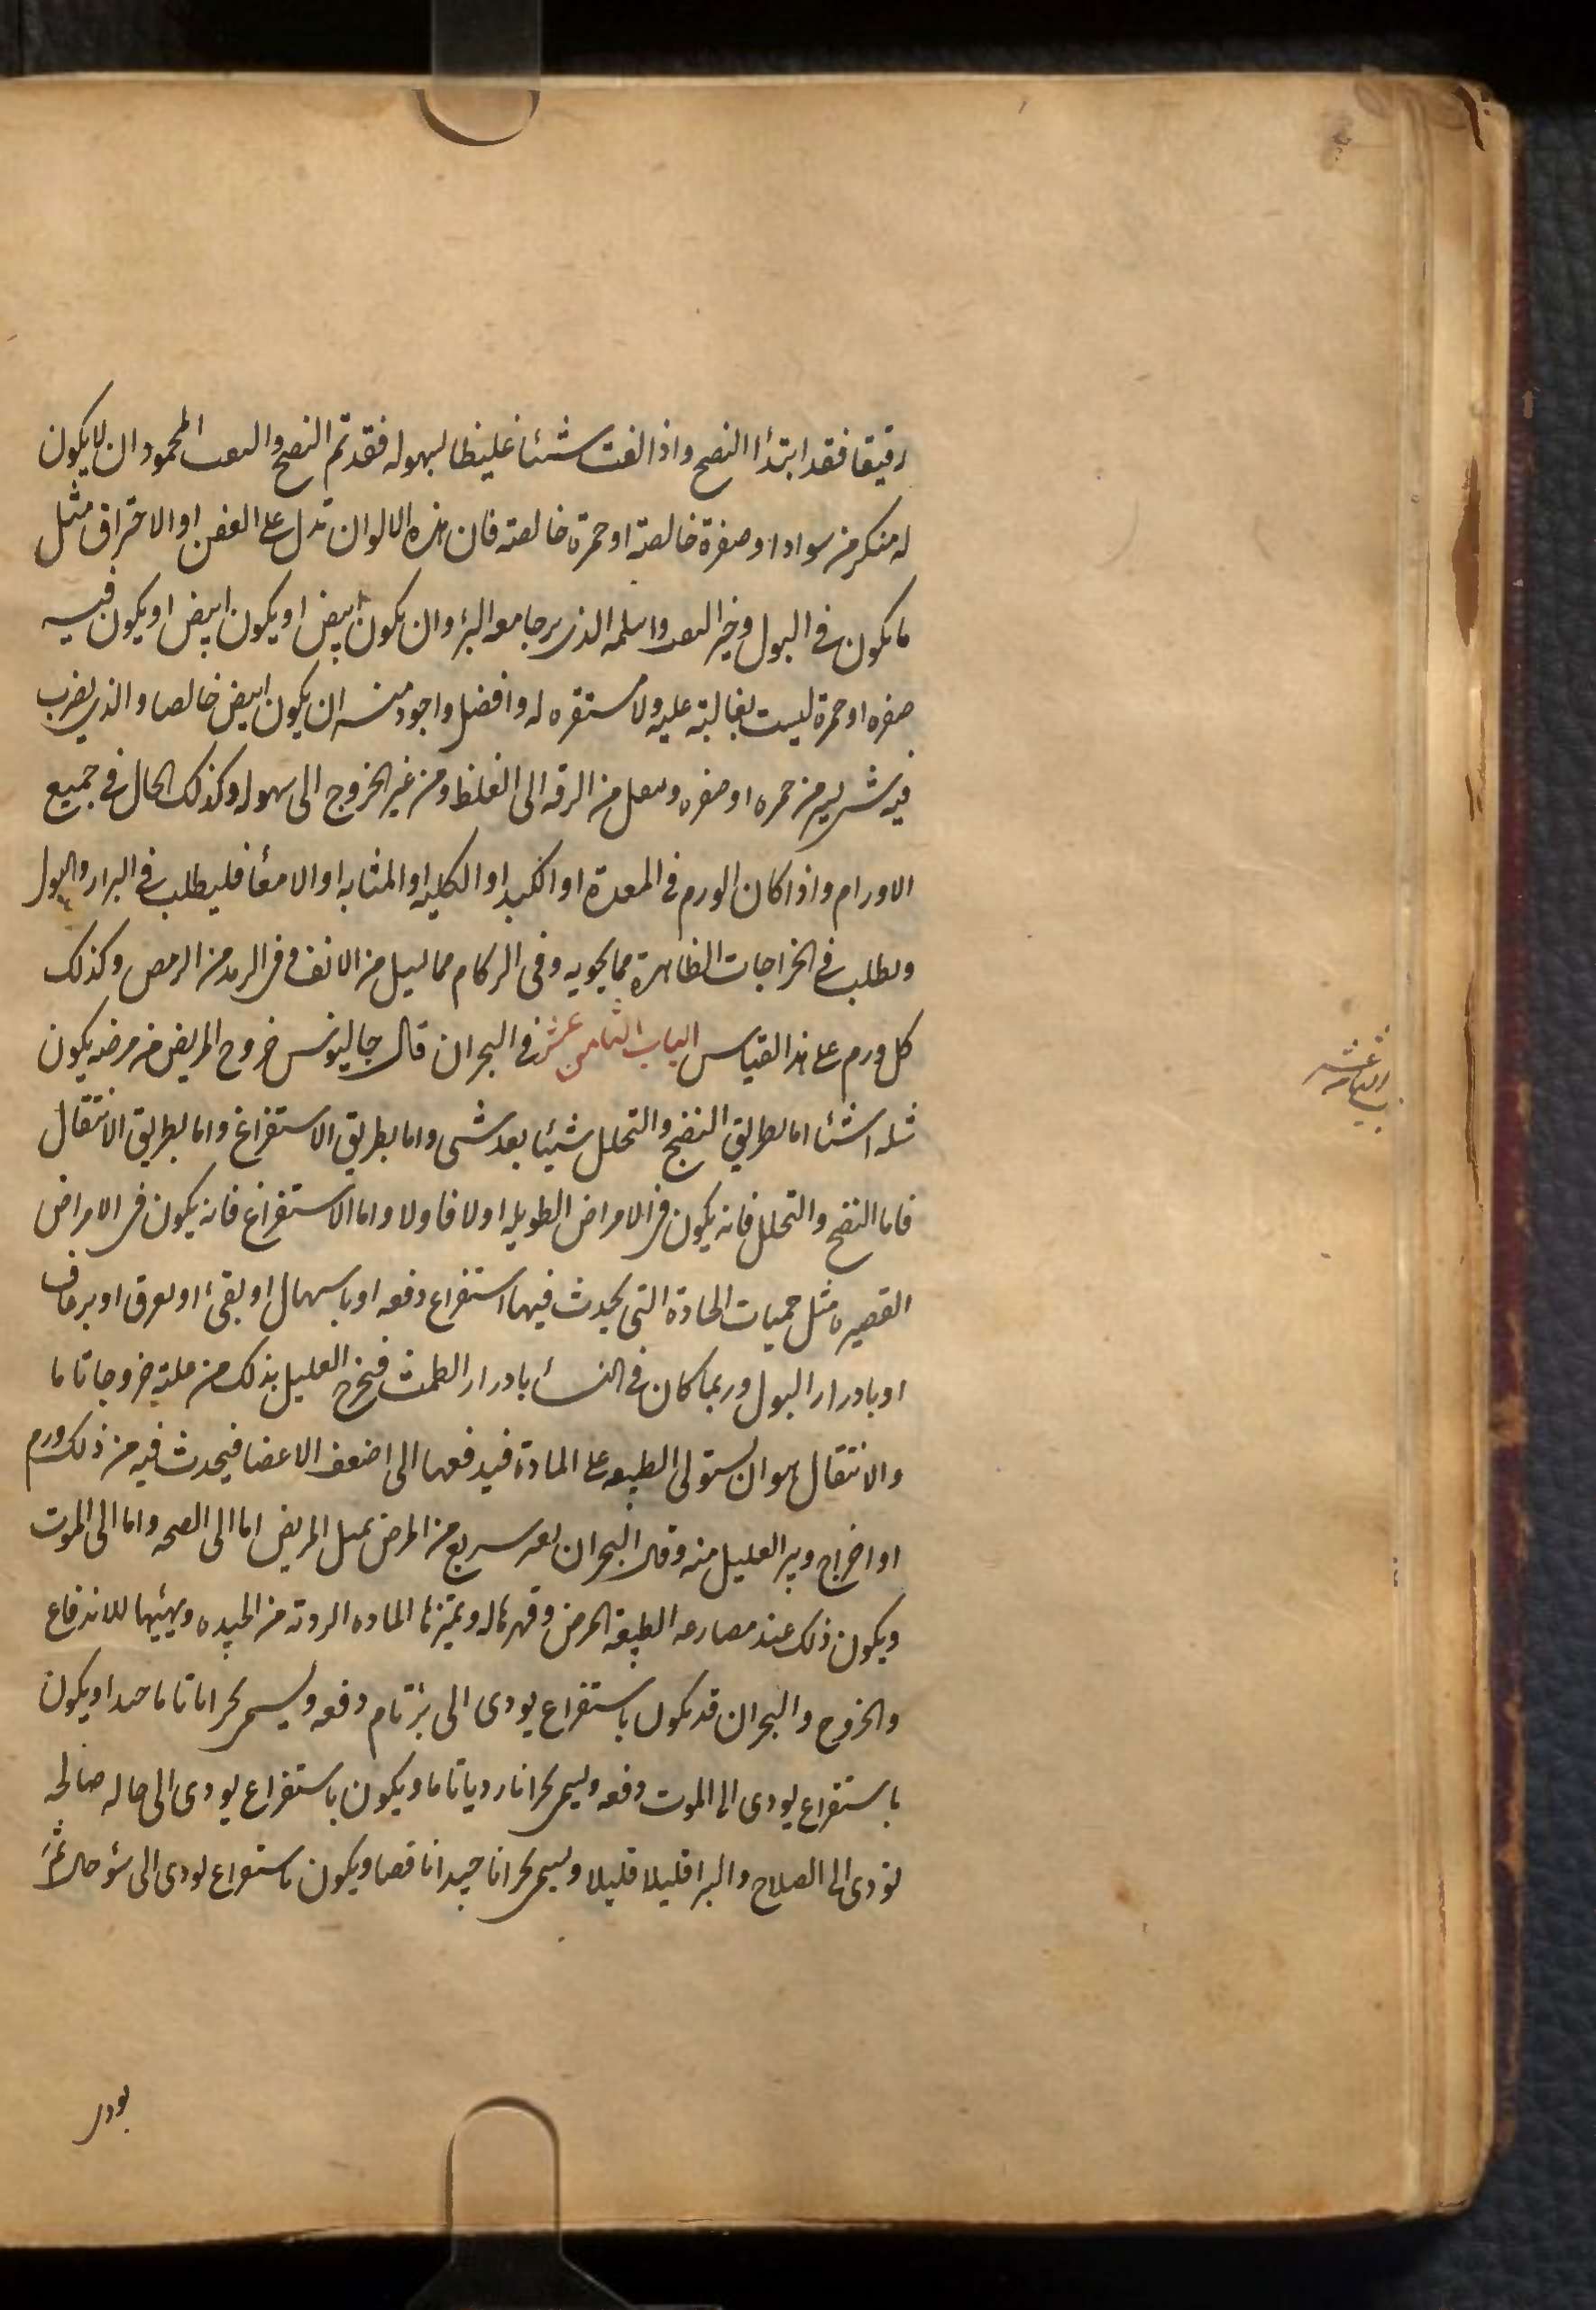 رقيقا فقد ابتدأ النضج واذا نفث شئا غليظا بسهوله فقد تم النضج والنفث المحمود ان لا يكون
له منكر من سواد او صفرة خالصة او حمرة خالصة فان هذه الالوان تدل على العفن او الاحتراق مثل
ما يكون في البول وخير النفث واسلمه الذي يرجا معه البرؤ ان يكون ابيض او يكون ابيض او يكون فيه
صفره او حمرة ليست بغالبة عليه ولا مستقره له وافضل واجود منه ان يكون ابيض خالصا والذي يضرب
فيه شى يسير من حمره او صفره وينتقل من الرقه الى الغلظ ومن غير الخروج الى سهوله وكذلك الحال في جميع
الاورام واذا كان الورم في المعدة او الكبد او الكليه او المثانه او الامعأ فليطلب في البراز والبول
ويطلب في الخراجات الظاهرة مما يحويه وفي الزكام مما يسيل من الانف وفي الرمد من الرمص وكذلك
كل ورم على هذا القياس الباب الثامن عشر في البحران قال جالينوس خروج المريض من مرضه يكون
ثلثه اشئا اما بطريق النضج والتحلل شيئا بعد شى واما بطريق الاستفراغ واما بطريق الانتقال
فاما النضج والتحلل فانه يكون في الامراض الطويله اولا فاولا واما الاستفراغ فانه يكون في الامراض
القصيره مثل حميات الحادة التى يحدث فيها استفراغ دفعه او باسهال او بقئ او بعرق او برعاف
او بادرار البول وربما كان في النسأ بادرار الطمث فيخرج العليل بذلك من علته خروجا تاما
والانتقال هو ان يستولى الطبيعه على المادة فيدفعها الى اضعف الاعضا فيحدث فيه من ذلك ورم
او اخراج ويبر العليل منه وقال البحران تغير سريع من المرض يميل المريض اما الى الصحه واما الى الموت
ويكون ذلك عند مصارعه الطبيعة المرض وقهرها له وتميزها الماده الردئه من الجيده وتهيئها للاندفاع
والخروج والبحران قد يكون باستفراغ يودى الى برؤ تام دفعه ويسمى بحرانا تاما جيدا ويكون
باستفراغ يودى الى الموت دفعه ويسمى بحرانا رديا تاما ويكون باستفراغ يودى الى حاله صالحه
تودى الى الصلاح والبرا قليلا قليلا ويسمى بحرانا جيدا ناقصا ويكون باستفراغ يودى الى سؤ حال ثم
يودى
الباب الثامن عشر